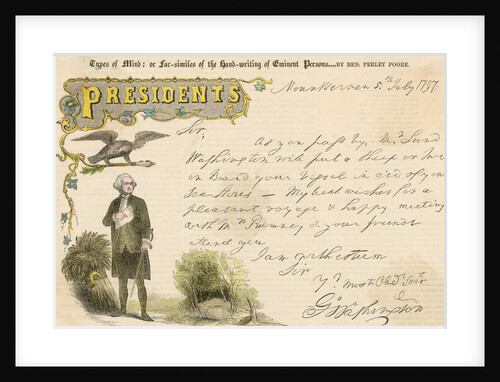 Types of Mind; or Fac-similes of the Hand-writing of Eminent Persons....BY BEN: PERLEY POORE.
PRESIDENTS
Mount Vernon 5th July 1797.
Sir,
As you pass by, Mr. Lund
Washington will put a Sheep or two
on Board your Vessel in aid of your
Sea Stores — My best wishes for a
pleasant voyage & happy meeting
with Mrs. Rumney & your friends
attend you
I am with esteem
Sir
Yr. most Obedt. Servt.
Go. Washington